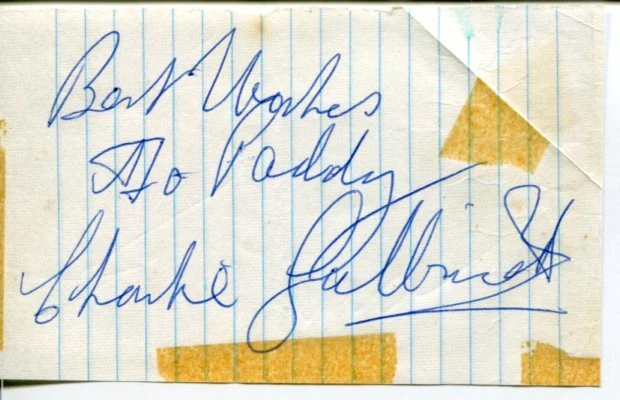 Best Wishes
To Paddy
Charlie Galbraith